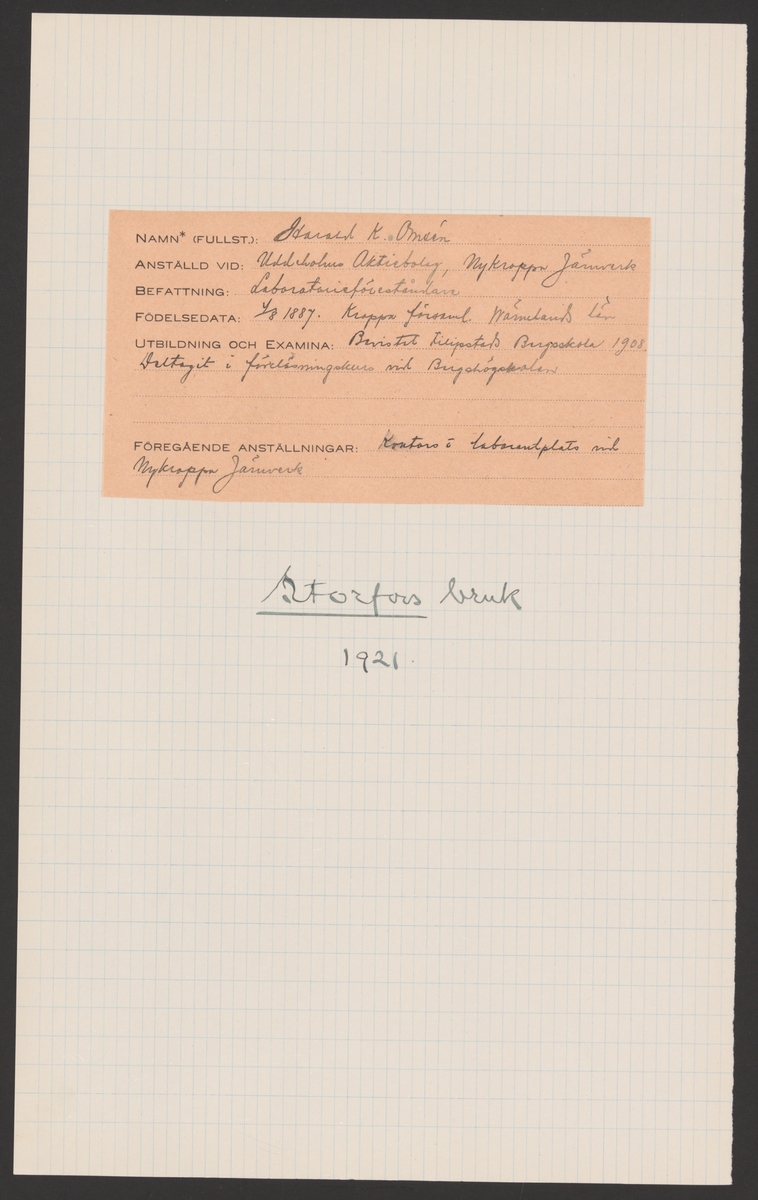 NAMN* (FULLST.): Harald K. Omsén
ANSTÄLLD VID: Uddeholms Aktiebolag, Nykroppa Järnverk
BEFATTNING: Laboratorieföreståndare
FÖDELSEDATA: 1887. Kroppa församl. Wärmlands Län
UTBILDNING OCH EXAMINA: Bevistat Filipstads Bergsskola 1908.
Deltagit i föreläsningskurs vid Bergshögskolan
FÖREGÅENDE ANSTÄLLNINGAR: Kontors o laborantplats vid
Nykroppa Järnverk
Storfors bruk
1921.